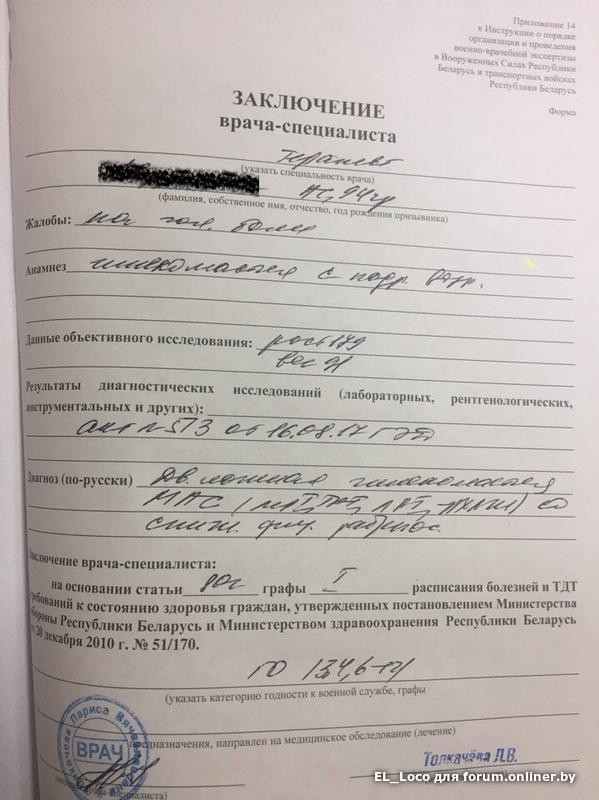 Приложение 14
к Инструкции о порядке
организации и проведения
военно-врачебной экспертизы
в Вооруженных Силах Республики
Беларусь и транспортных войсках
Республики Беларусь
Форма
ЗАКЛЮЧЕНИЕ
врача-специалиста
(указать специальность врача)
94 гр
(фамилия, собственное имя, отчество, год рождения призывника)
Жалобы: на гол. боли
Анамнез гинекомастия с подр. возр.
Данные объективного исследования: рост 179
вес 91
Результаты диагностических исследований (лабораторных, рентгенологических,
инструментальных и других):
акт №573 от 16.08.17
Диагноз (по-русски) Дв. ложная гинекомастия
МАС (
сниж. физ.
заключение врача-специалиста:
на основании статьи графы I расписания болезней и ТДТ
требований к состоянию здоровья граждан, утвержденных постановлением Министерства
обороны Республики Беларусь и Министерством здравоохранения Республики Беларусь
20 декабря 2010 г. № 51/170.
(указать категорию годности к военной службе, графы
предназначения, направлен на медицинское обследование (лечение)
ВРАЧ
Толкачёва Л.В.
EL_Loco для forum.onliner.by